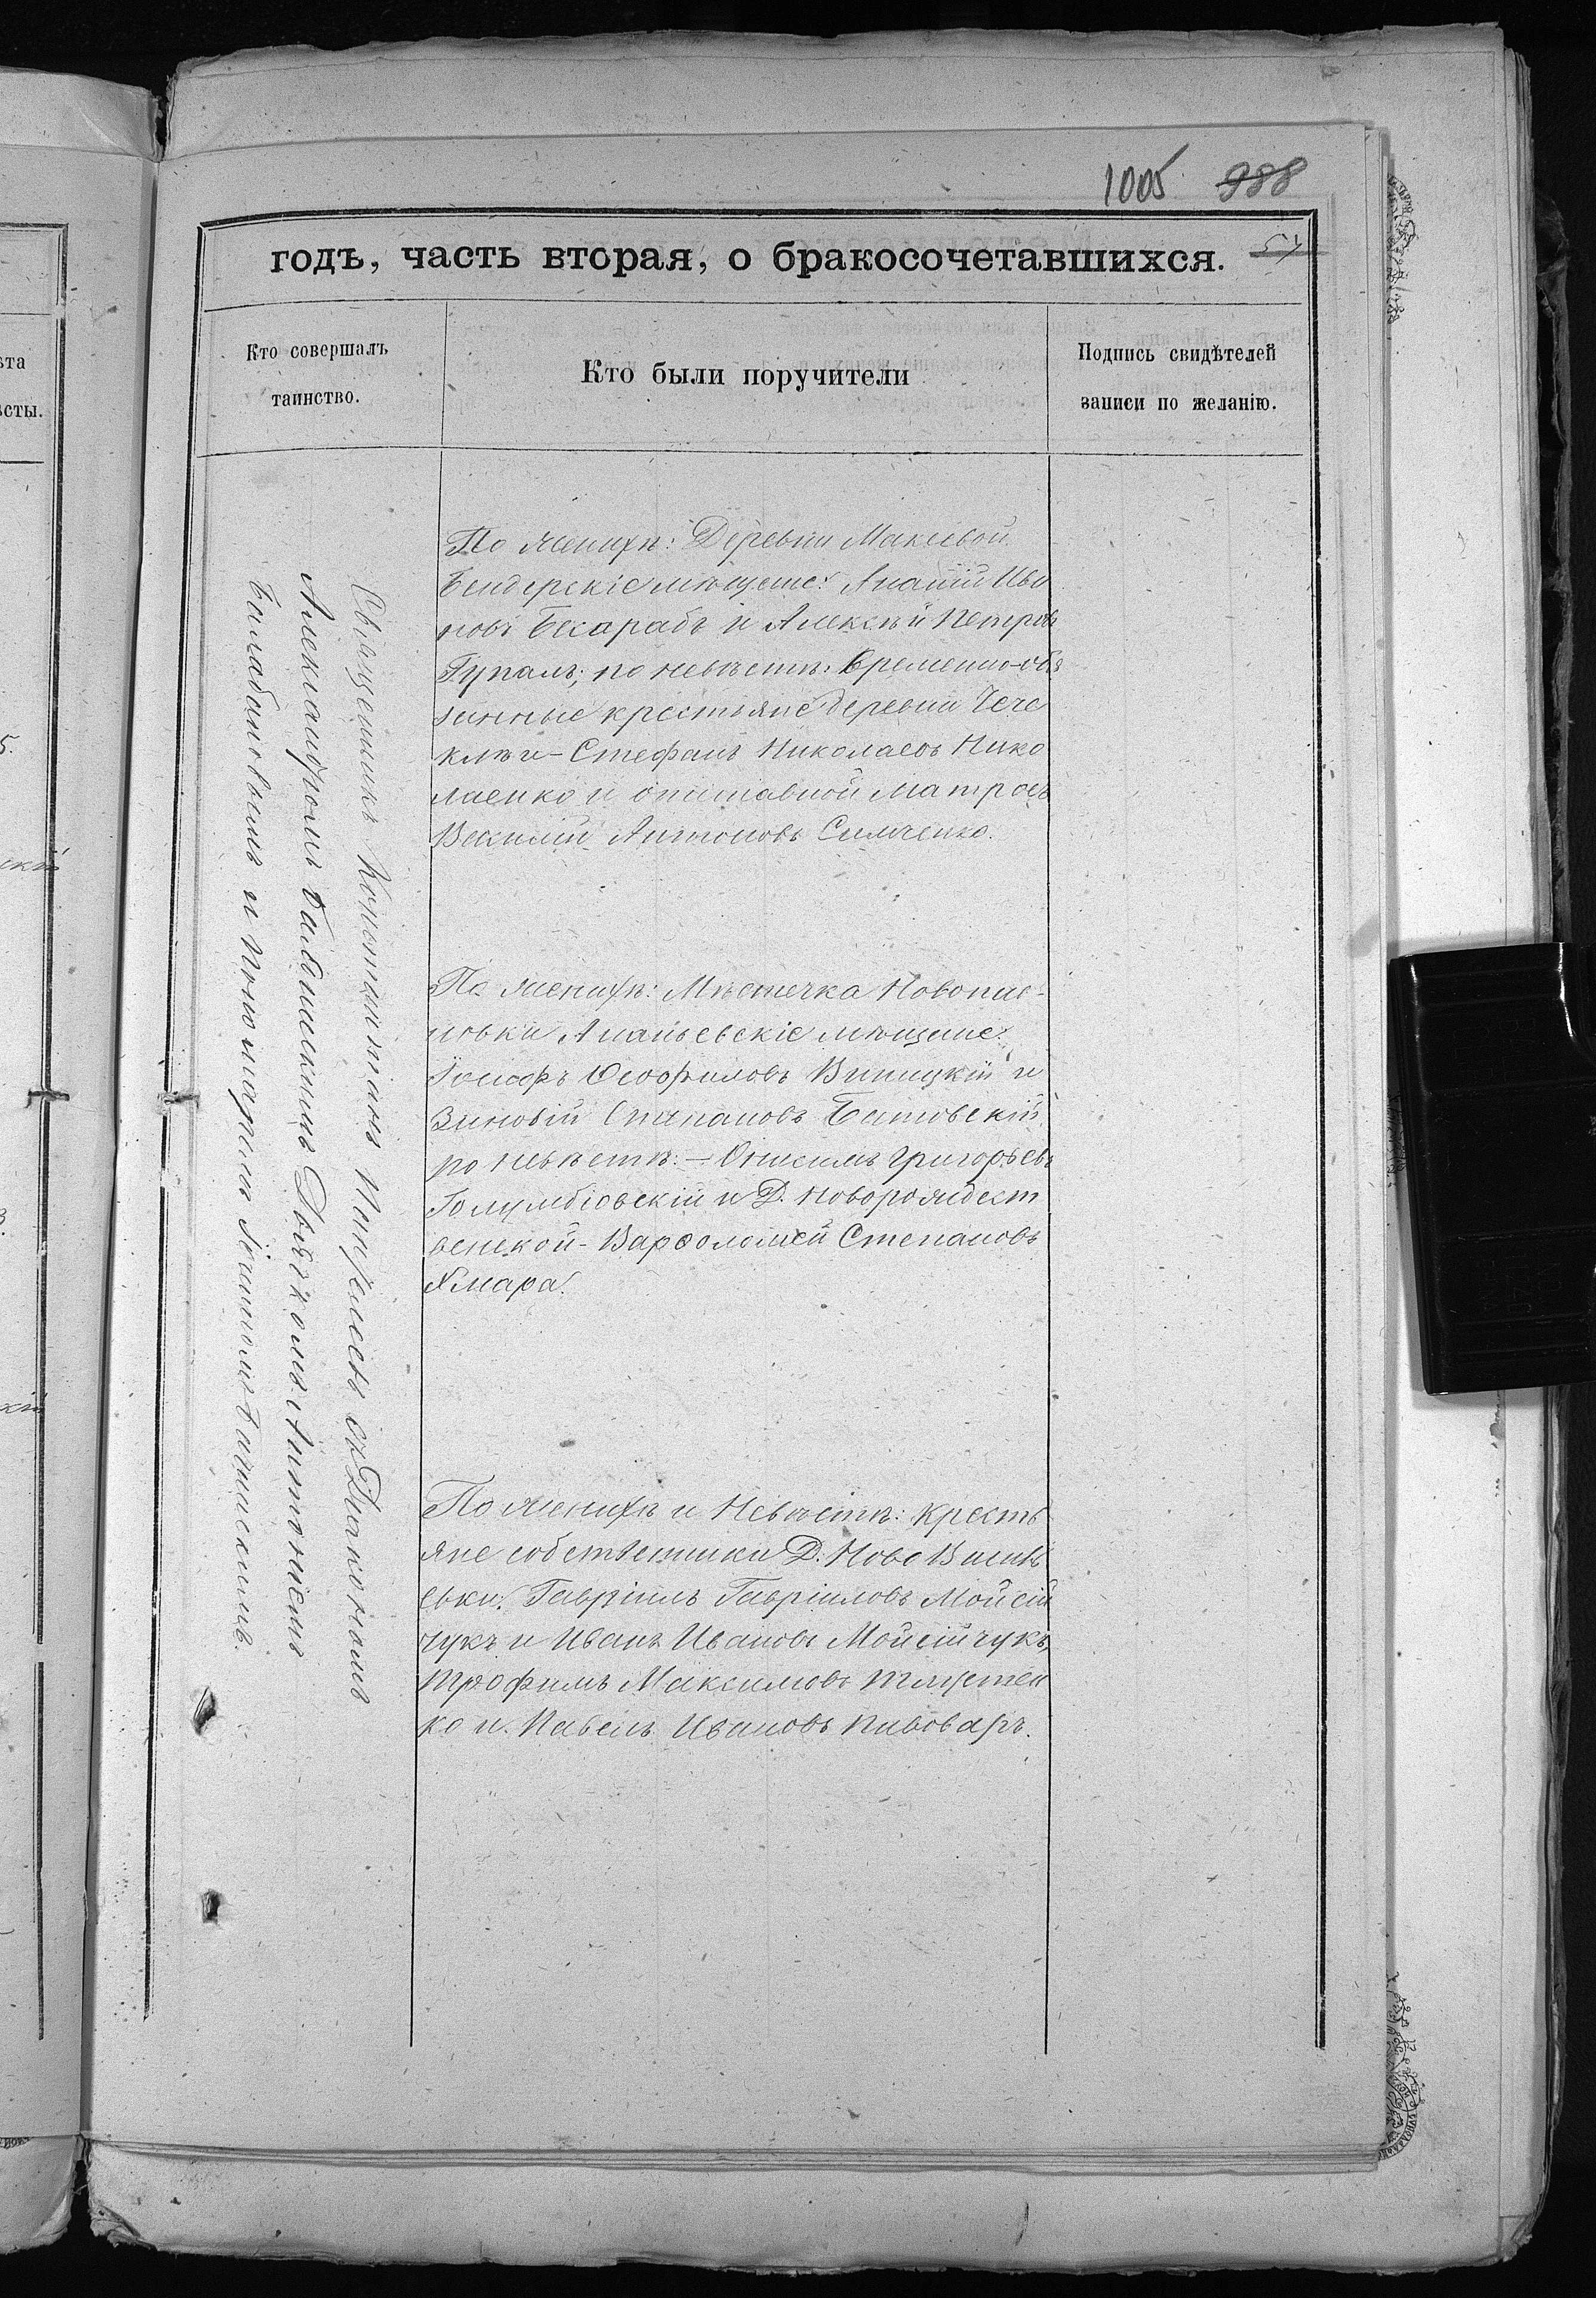 1005 988
годъ, часть вторая, о бракосочетавшихся. 57
Кто совершалъ
таинство.
Кто были поручители
Подпись свидѣтелей
записи по желанію.
Священникъ Константинъ съ Діакономъ
Александромъ Дьячкомъ Антоніемъ
Балабановымъ и Пономаремъ Іоанномъ
По женихѣ: Деревни Макеевой
Бендерскіе мѣщане: Ананій Ива
новъ Бесарабъ и Алексѣй Петровъ
Гупалъ; по невѣстѣ: Временно-обя
занные крестьяне деревни Чече
клѣи - Стефанъ Николаевъ Нико
лаенко и отставной матросъ
Василій Антоновъ Симченко.
По женихѣ: Мѣстечка Новопав-
ловки Ананьевскіе мѣщане:
Іосифъ Ѳеофиловъ Виницкій и
Зиновій Степановъ Батовскій
по невѣстѣ: - Онисимъ Григорьевъ
Голумбіовскій и Д. Новорождест
венской - Варѳоломей Степановъ
Хмара.
По женихѣ и Невѣстѣ: кресть
яне собственники Д. Ново Василь
евки: Гавріилъ Гавріиловъ Мойсій
чукъ и Иванъ Ивановъ Мойсійчукъ,
Трофимъ Максимовъ
ко и Павелъ Ивановъ Пивоваръ.